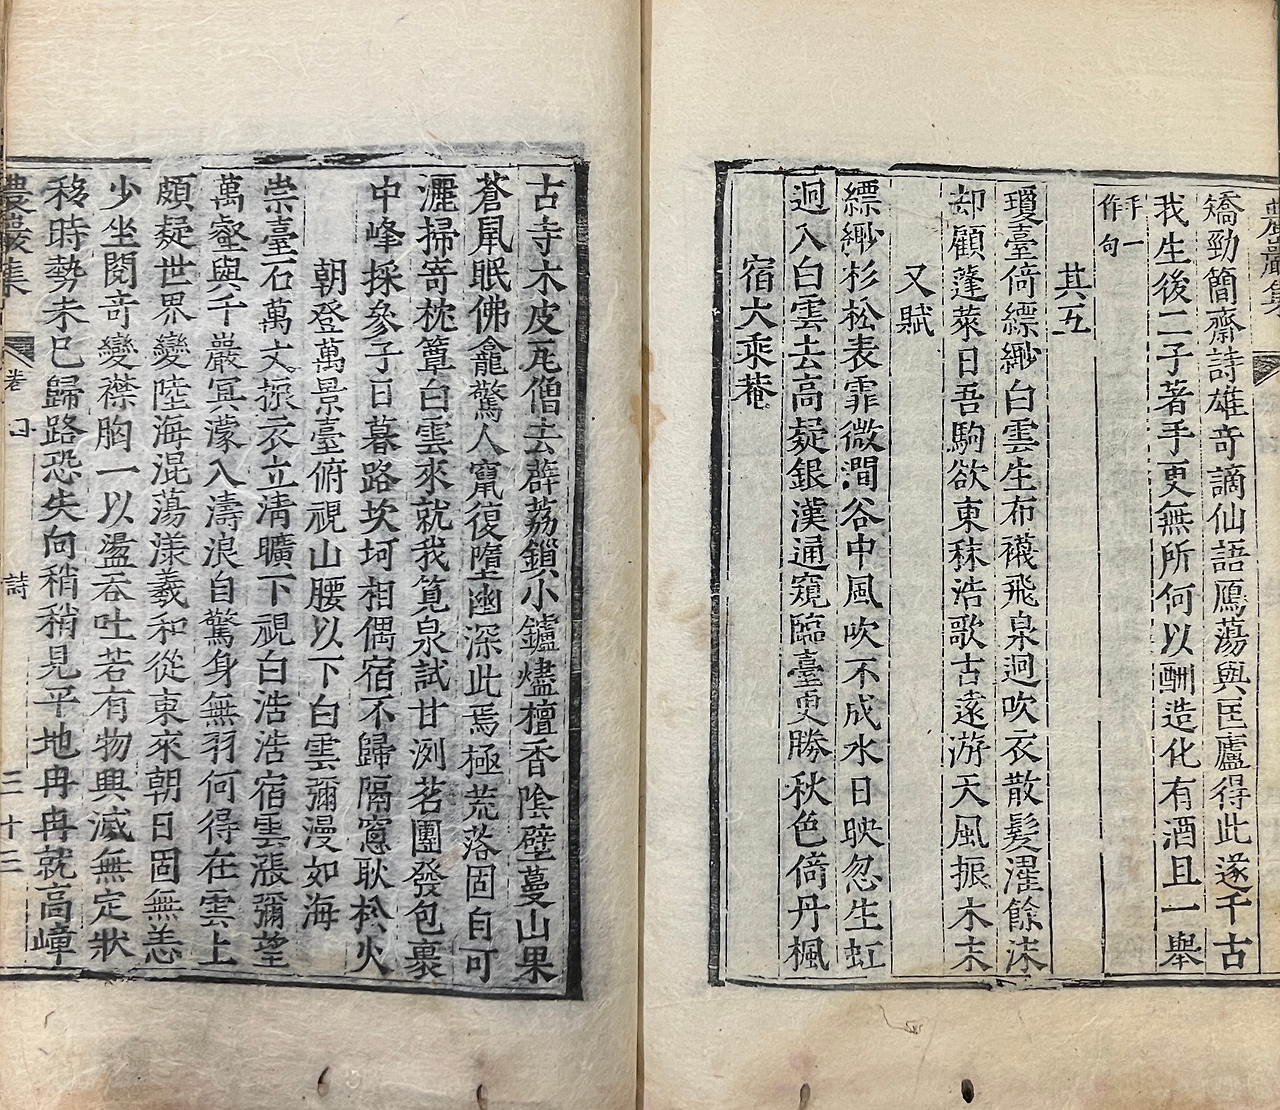 農巖集
矯勁簡齋詩雄奇謫仙語鴈蕩與匡廬得此遂千古
我生後二子著手更無所何以酬造化有酒且一舉
手一
作句
其五
瓊臺倚縹緲白雲生布襪飛泉迥吹衣散髮濯餘沫
却顧蓬萊日吾駒欲東秣浩歌古遠游天風振木末
又賦
縹緲杉松表霏微澗谷中風吹不成水日映忽生虹
迥入白雲去高疑銀漢通窺臨臺更勝秋色倚丹楓
宿大乘菴
古寺木皮瓦僧去薜荔鎖小鑪燼檀香陰壁蔓山果
蒼鼠眠佛龕驚人竄復墮幽深此焉極荒落固自可
灑掃寄枕簟白雲來就我筧泉試甘洌茗團發包裹
中峰採參子日暮路坎坷相偶宿不歸隔窻耿松火
朝登萬景臺俯視山腰以下白雲彌漫如海
崇臺石萬丈振衣立淸曠下視白浩浩宿雲漲彌望
萬壑與千巖冥濛入濤浪自驚身無羽何得在雲上
頗疑世界變陸海混蕩漾羲和從東來朝日固無恙
少坐閱奇變襟胸一以盪呑吐若有物興滅無定狀
移時勢未已歸路恐失向稍稍見平地冉冉就高嶂
農巖集
卷
詩
三十三